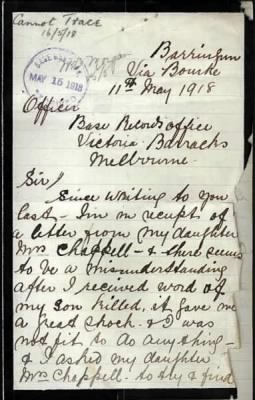 Cannot Trace
16/5/18
MAY 15 1918
Barringun
Via Bourke
11th May 1918
Officer
Base Records Office
Victoria Barracks
Melbourne
Sir/
Since writing to you
last - I'm in recept of
a letter from my daughter
Mrs Chappell - & there seems
to be a misunderstanding
after I received word of
my son killed, it gave me
a great shock - & I was
not fit to do anything -
& I asked my daughter
Mrs Chappell - to try & find